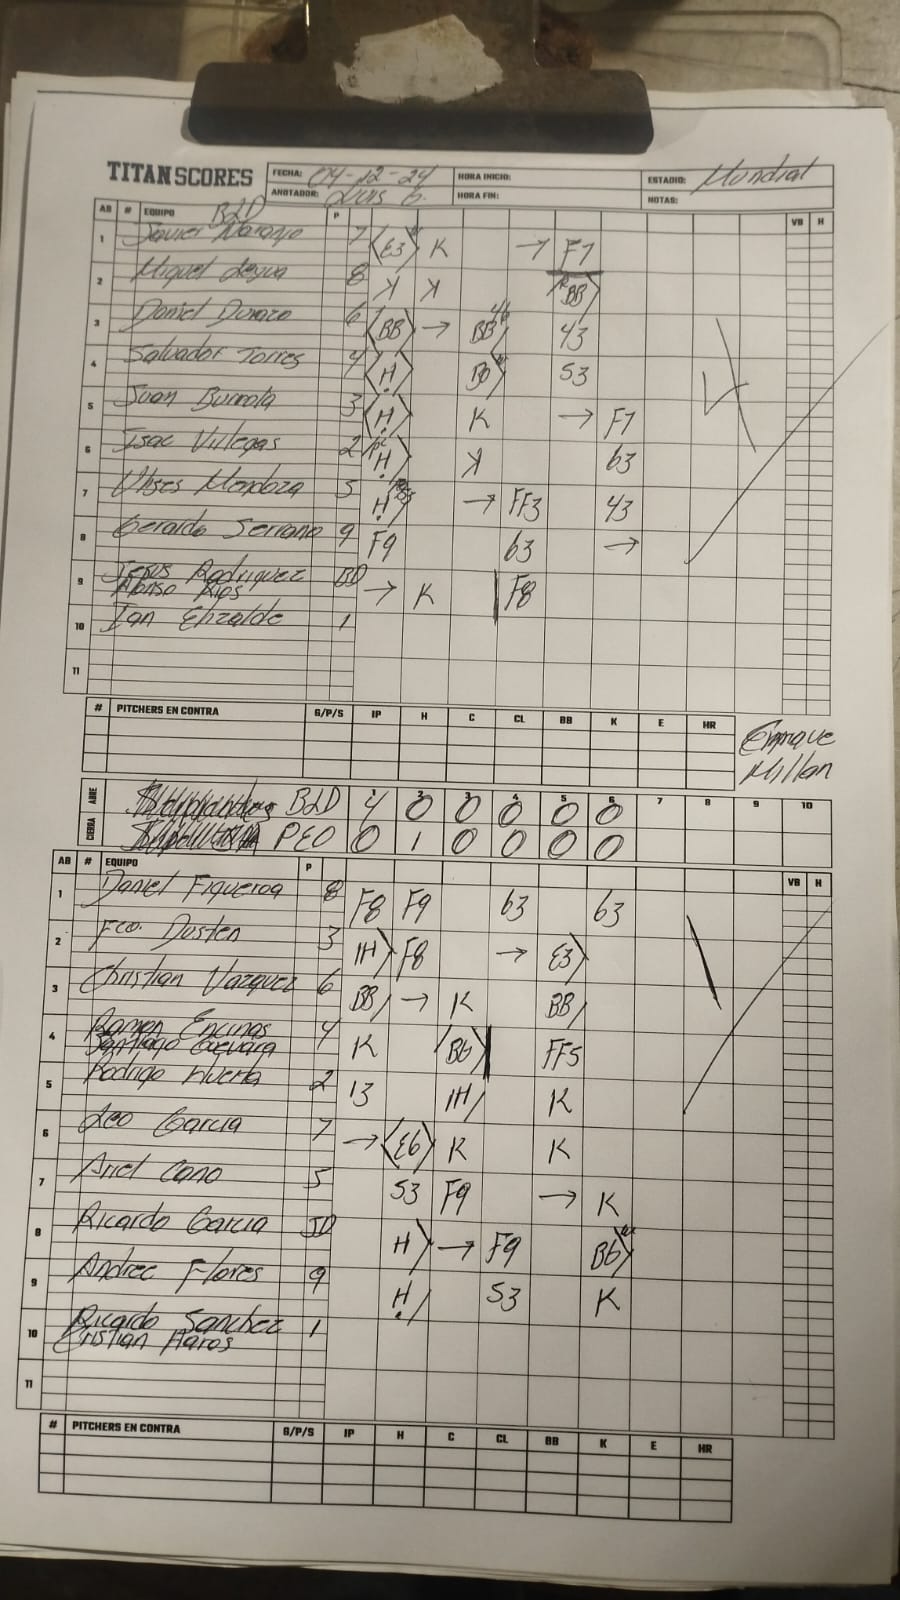 TITAN SCORES
FECHA: 04-12-24 HORA INICIO: ESTADIO: Mundial
ANOTADOR: Luis G. HORA FIN: NOTAS:
AB # EQUIPO BLD P VB H
1 Javier Naranjo 7 E3 K → F7
2 Miguel Leyva 8 K K BB
3 Daniel Durazo 6 BB → BB 46 43
4 Salvador Torres 4 H BB 53
5 Juan Burrola 3 H K → F7
6 Isac Villegas 2 H K 63
7 Ulises Mendoza 5 H → FF3 43
8 Gerardo Serrano 9 F9 63 →
9 Jesus Rodriguez BD → K F8
Alonso Rios
10 Ian Elizalde 1
11
# PITCHERS EN CONTRA G/P/S IP H C CL BB K E HR
Enrique
Millan
1 2 3 4 5 6 7 8 9 10
ABRE BLD 4 0 0 0 0 0
CIERRA PEO 0 1 0 0 0 0
AB # EQUIPO P VB H
1 Daniel Figueroa 8 F8 F9 63 63
2 Fco. Dusten 3 IH F8 → E3
3 Christian Vazquez 6 BB → K BB
4 Ramon Encinas 4 K BB FF5
Santiago Guevara
5 Rodrigo Huerta 2 13 IH K
6 Leo Garcia 7 → E6 K K
7 Ariel Cano 5 53 F9 → K
8 Ricardo Garcia JD H → F9 BB
9 Andree Flores 9 H 53 K
10 Ricardo Sanchez 1
Cristian Haros
11
# PITCHERS EN CONTRA G/P/S IP H C CL BB K E HR